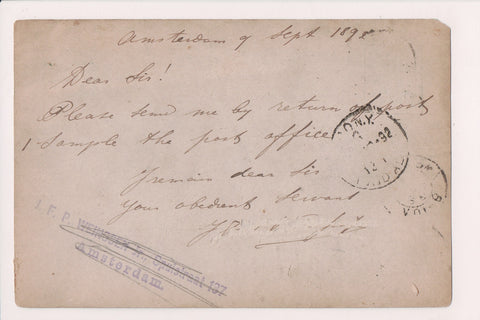 Amsterdam 9 Sept 189
Dear Sir!
Please send me by return of post
1 Sample the post office
I remain dear Sir
Your obedient Servant
J. F. P.
Amsterdam.
92